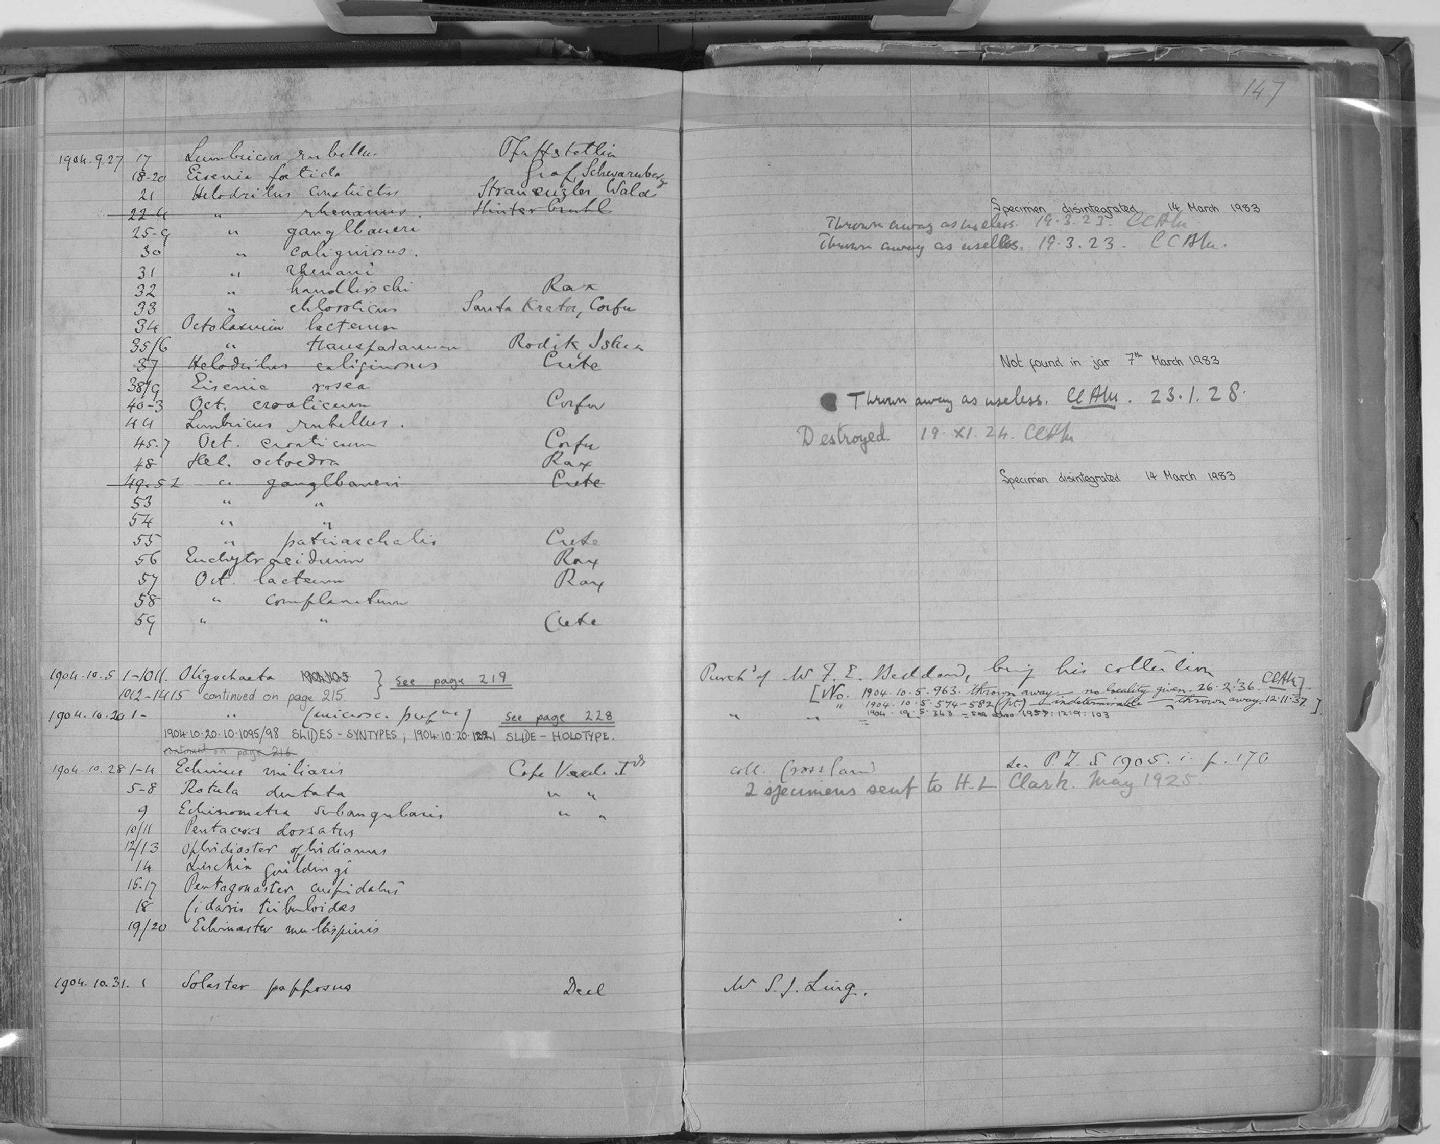 147
1904.9.27 17 Lumbricus rubellus. Pfaffstättin
18-20 Eisenia foetida Graf Schwarzenberg
21 Helodrilus constrictus Stranenzler Wald
22-4 " rhenanus. Hinterbrühl Specimen disintegrated 14 March 1983
25-9 " ganglbaueri Thrown away as useless. 19.3.23. CCAM
30 " caliginosus. Thrown away as useless. 19.3.23. CCAM.
31 " rhenani
32 " handlirschi Rax
33 " chloroticus Santa Kreta, Corfu
34 Octolasium lacteum
35/6 " transpadanum Rodik Istria
37 Helodrilus caliginosus Crete Not found in jar 7th March 1983
38/9 Eisenia rosea
40-3 Oct. croaticum Corfu Thrown away as useless. CCAM. 23.1.28.
44 Lumbricus rubellus.
45-7 Oct. croaticum Corfu Destroyed 19.XI.24. CCAM
48 Hel. octoedra Rax
49-52 " ganglbaueri Crete Specimen disintegrated 14 March 1983
53 " "
54 " "
55 " patriarchalis Crete
56 Enchytraeidium Rax
57 Oct. lacteum Rax
58 " complanatum
59 " " Crete
1904.10.5 1-1011. Oligochaeta } see page 219 Purchd of Mr F. E. Beddard, being his collection
1012-1415 continued on page 215 [No. 1904.10.5.963. thrown away - no locality given. 26.2.36. CCAM]
" 1904.10.5.574-582 (pt.) - indeterminable - thrown away 12.11.37].
1904.10.20 1- " [microsc. prepns] see page 228 " " 1904.10.5.343 = 1959.12.19.103
1904.10.20.10.1095/98 SLIDES-SYNTYPES; 1904.10.20. SLIDE-HOLOTYPE.
continued on page 216
1904.10.28 1-4 Echinus miliaris Cape Verde Ids coll. Crossland see P.Z.S 1905. i. p. 170
5-8 Rotula dentata " " 2 specimens sent to H.L Clark. May 1925
9 Echinometra subangularis " "
10/11 Pentaceros dorsatus
12/13 Ophidiaster ophidianus
14 Linckia guildingi
15-17 Pentagonaster cuspidatus
18 Cidaris tribuloides
19/20 Echinaster multispinis
1904.10.31. 1 Solaster papposus Deal Mr S. J. Ling.